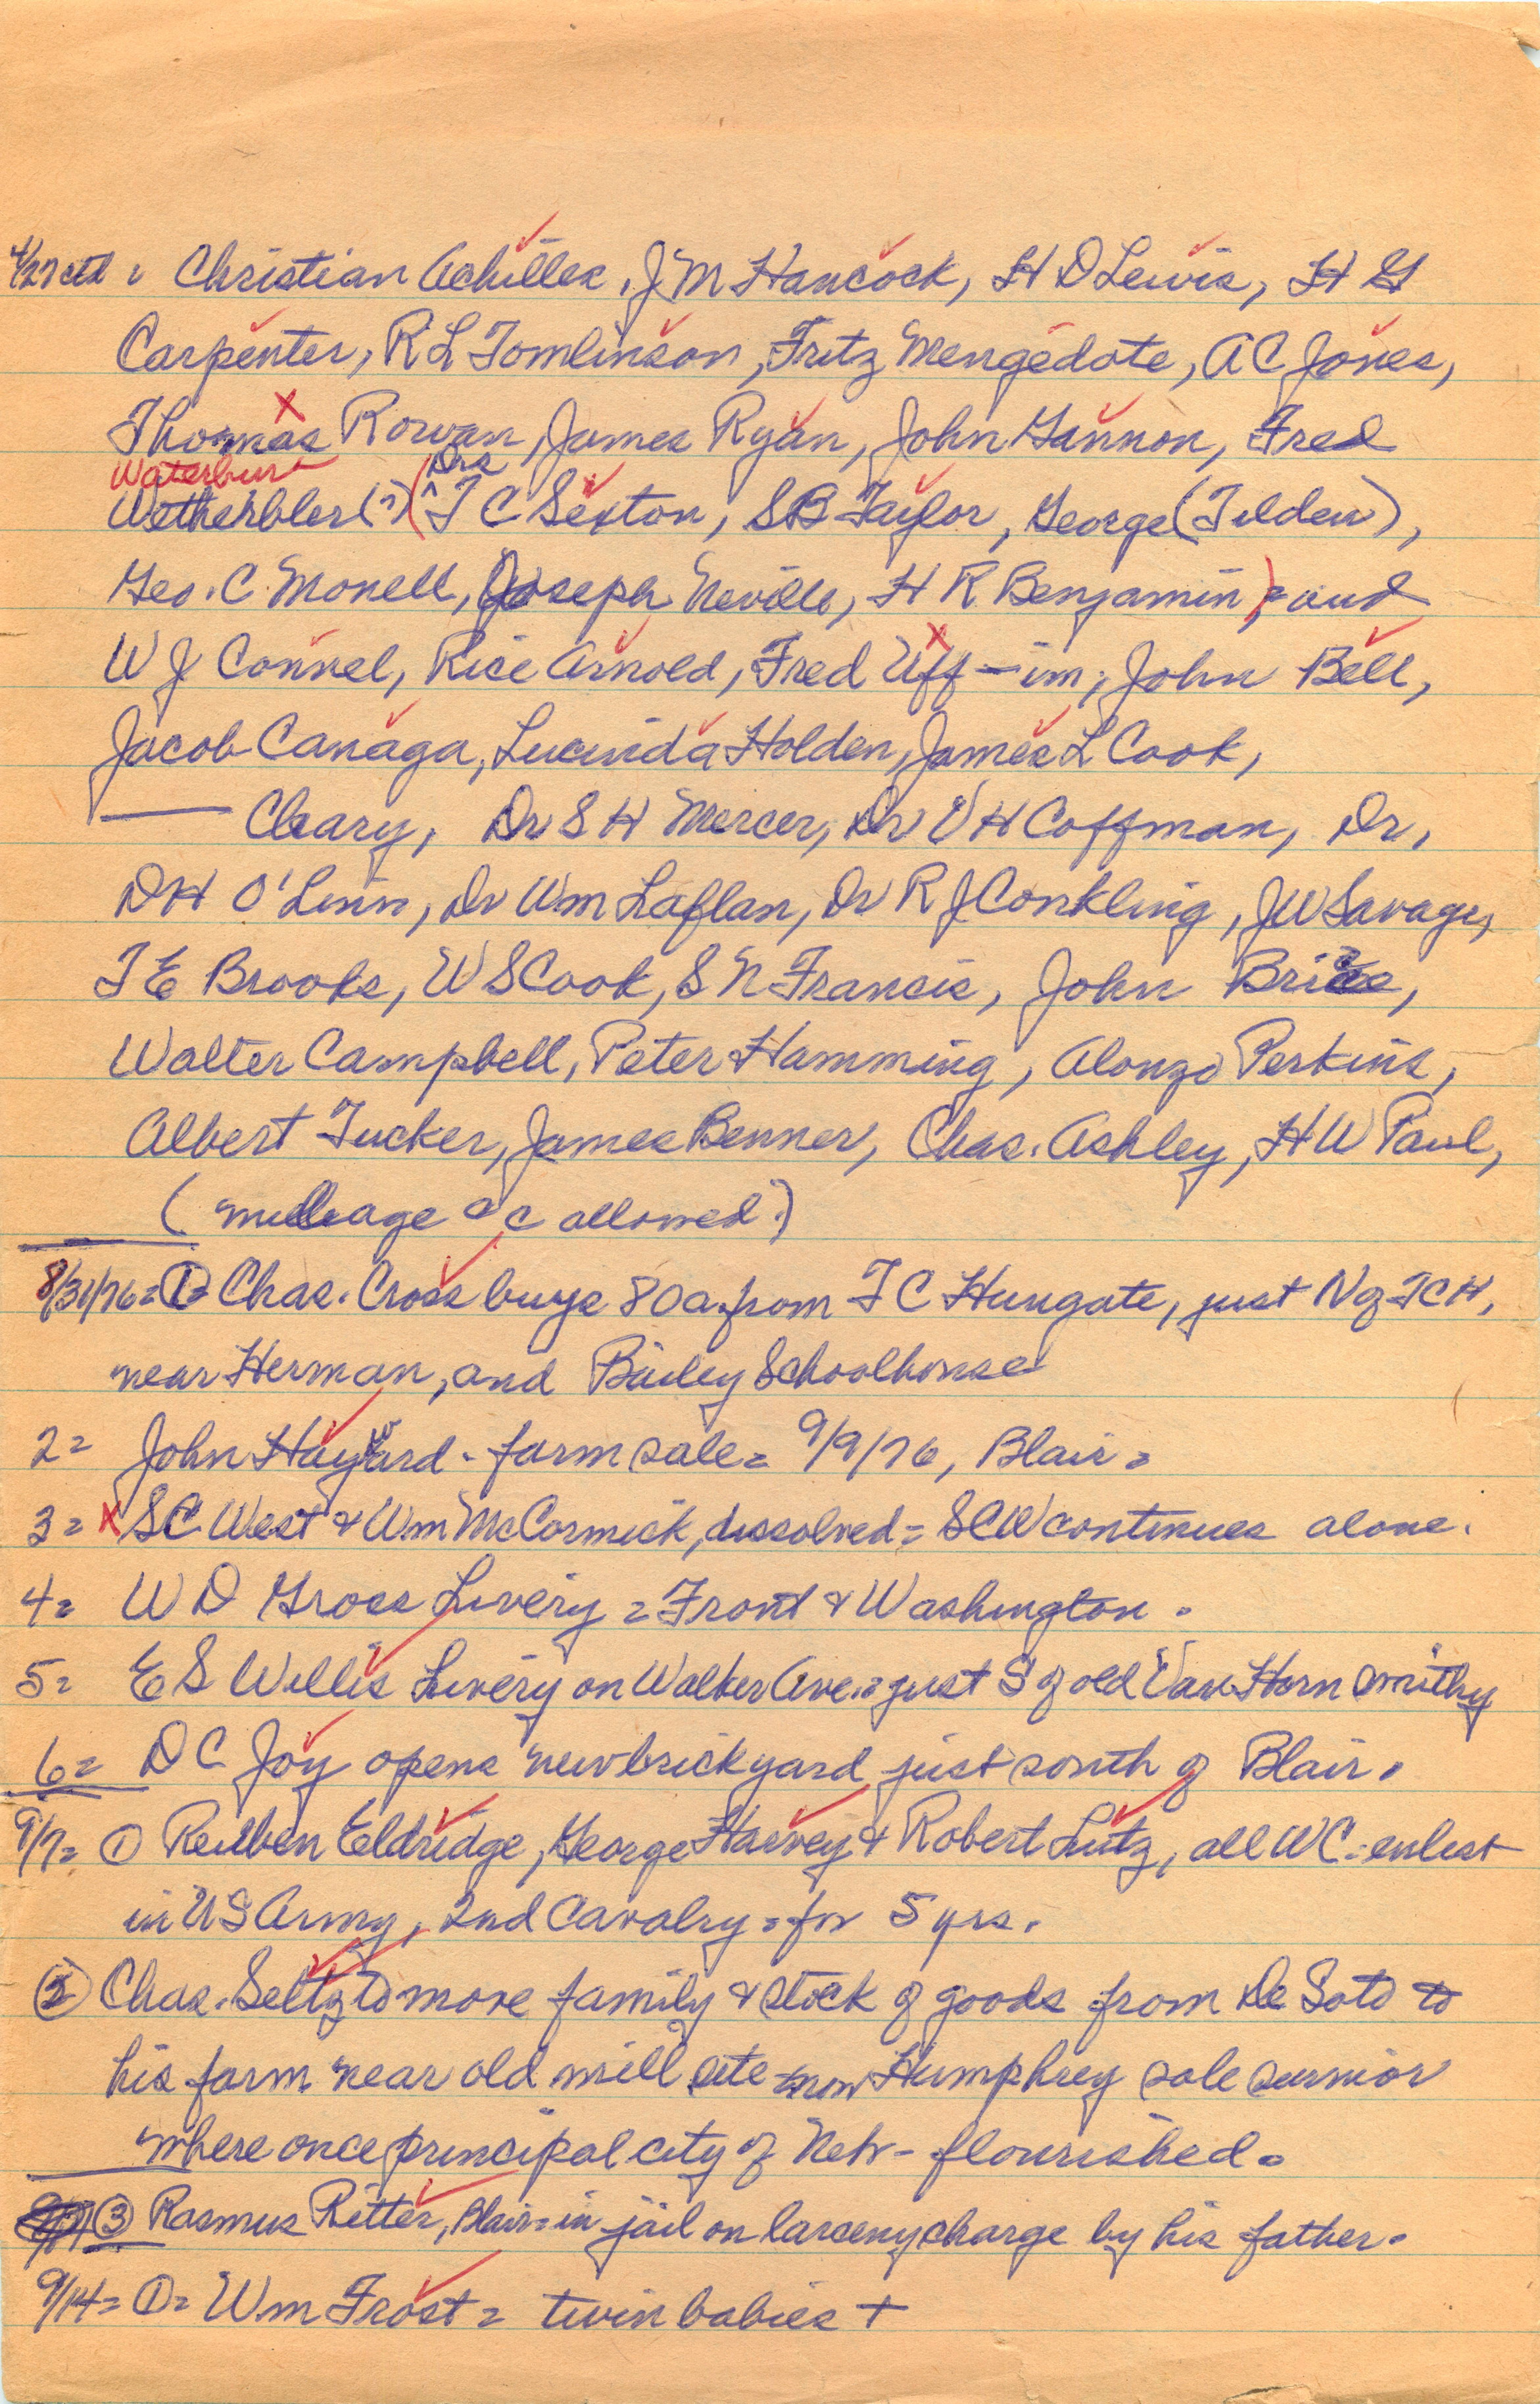 4/27 ctd = Christian Achilles, J M Hancock, H D Lewis, H G
Carpenter, R L Tomlinson, Fritz Mengedote, A C Jones,
Thomas Rowan, James Ryan, John Gannon, Fred
Waterbury Drs
Wetherbler (?) (^ T C Sexton, S B Taylor, George (Tilden),
Geo. C. Monell, Joseph Neville, H R Benjamin) = and
W J Connel, Rice Arnold, Fred Uff-im, John Bell,
Jacob Canaga, Lucinda Holden, James L Cook,
—— Cleary, Dr S H Mercer, Dr V H Coffman, Dr.
D H O'Linn, Dr Wm Laflan, Dr R J Conkling, J W Savage,
T E Brooks, W S Cook, S N Francis, John Brice,
Walter Campbell, Peter Hamming, Alonzo Perkins,
Albert Tucker, James Benner, Chas. Ashley, H W Paul,
( milleage &c allowed.)
8/31/76 = ① = Chas. Cross buys 80a. from T C Hungate, just N of TCH,
near Herman, and Bailey Schoolhouse
2 = John Hayward - farm sale = 9/9/76, Blair =
3 = x S C West & Wm McCormick, dissolved = SCW continues alone.
4 = W D Gross Livery = Front & Washington.
5 = E S Willis Livery on Walker Ave. = just S of old Van Horn smithy
6 = D C Joy opens new brickyard just south of Blair.
9/7 = ① Reuben Eldridge, George Harvey & Robert Lutz, all WC - enlist
in US Army, 2nd Cavalry = for 5 yrs.
② Chas. Seltz to move family & stock of goods from De Soto to
his farm near old mill site now Humphrey sole survivor
where once principal city of Neb - flourished.
③ Rasmus Ritter, Blair = in jail on larceny charge by his father.
9/14 = ① = Wm Frost = twin babies +